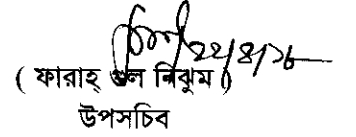 ২২/৪/২৬
( ফারাহ্ গুল নিঝুম )
উপসচিব